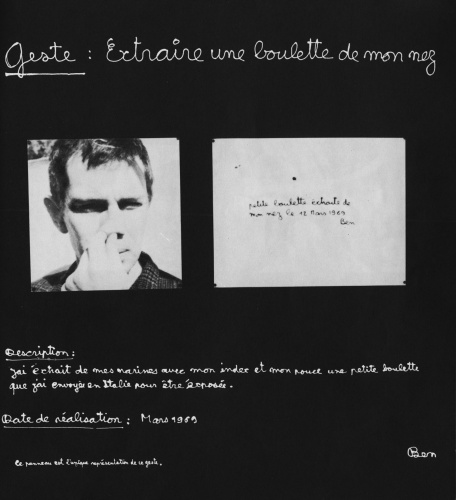 Geste : Extraire une boulette de mon nez
petite boulette extraite de
mon nez le 12 Mars 1969
Ben
Description :
J'ai extrait de mes narines avec mon index et mon pouce une petite boulette
que j'ai envoyée en Italie pour être exposée.
Date de réalisation : Mars 1969
Ben
Ce panneau est l'unique représentation de ce geste.